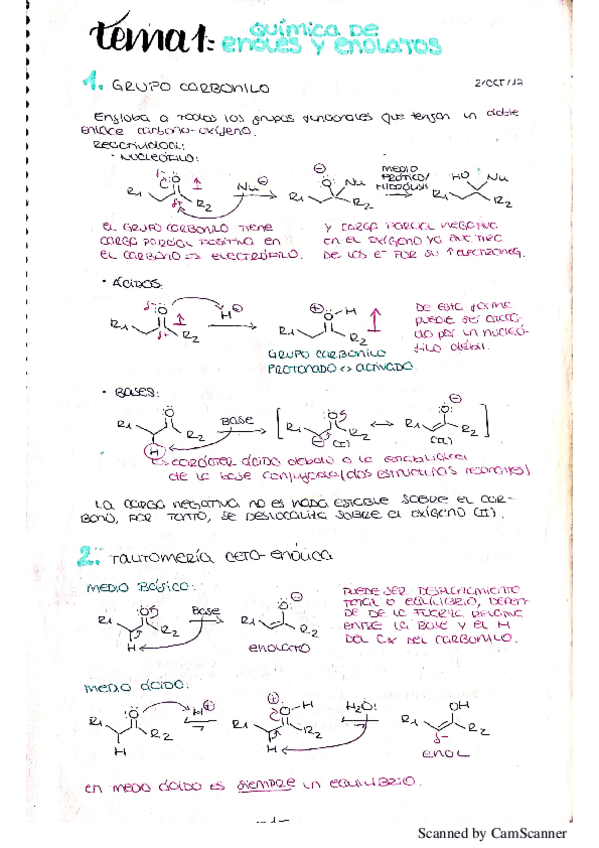 tema 1: QUÍMICA DE
ENOLES Y ENOLATOS
1. GRUPO CARBONILO
2/OCT/17
Engloba a todos los grupos funcionales que tengan un doble
enlace carbono-oxígeno.
Reactividad:
· NUCLEÓFILO:
R1 δ- O δ+ R2 Nu⊖ R1 ⊖O Nu R2 MEDIO
PRÓTICO/
HIDRÓLISIS R1 HO Nu R2
EL GRUPO CARBONILO TIENE
CARGA PARCIAL POSITIVA EN
EL CARBONO => ELECTRÓFILO.
Y CARGA PARCIAL NEGATIVA
EN EL OXÍGENO YA QUE TIRA
DE LOS e- POR SU ↑ELECTRONEG.
· ÁCIDOS:
R1 δ- O δ+ R2 H⊕ R1 ⊕O-H R2
GRUPO CARBONILO
PROTONADO <-> ACTIVADO.
DE ESTA FORMA
PUEDE SER ATACA-
DO POR UN NUCLEÓ-
FILO DÉBIL.
· BASES:
R1 O R2 H Base [ R1 O ⊖ R2 (I) ↔ R1 O⊖ R2 (II) ]
CARÁCTER ÁCIDO debido a la estabilidad
de la base conjugada (dos estructuras resonantes)
LA CARGA NEGATIVA NO ES NADA ESTABLE SOBRE EL CAR-
BONO, POR TANTO, SE DESLOCALIZA SOBRE EL OXÍGENO (II).
2. TAUTOMERÍA CETO-ENÓLICA
MEDIO BÁSICO:
R1 O R2 H Base R1 O⊖ R2
ENOLATO
PUEDE SER DESPLAZAMIENTO
TOTAL O EQUILIBRIO, DEPEN-
DE DE LA FUERZA RELATIVA
ENTRE LA BASE Y EL H
DEL Cα DEL CARBONILO.
MEDIO ÁCIDO:
R1 O R2 H H⊕ R1 ⊕O-H R2 H H2O: R1 OH R2 δ-
ENOL
EN MEDIO ÁCIDO ES SIEMPRE UN EQUILIBRIO.
-1-
Scanned by CamScanner